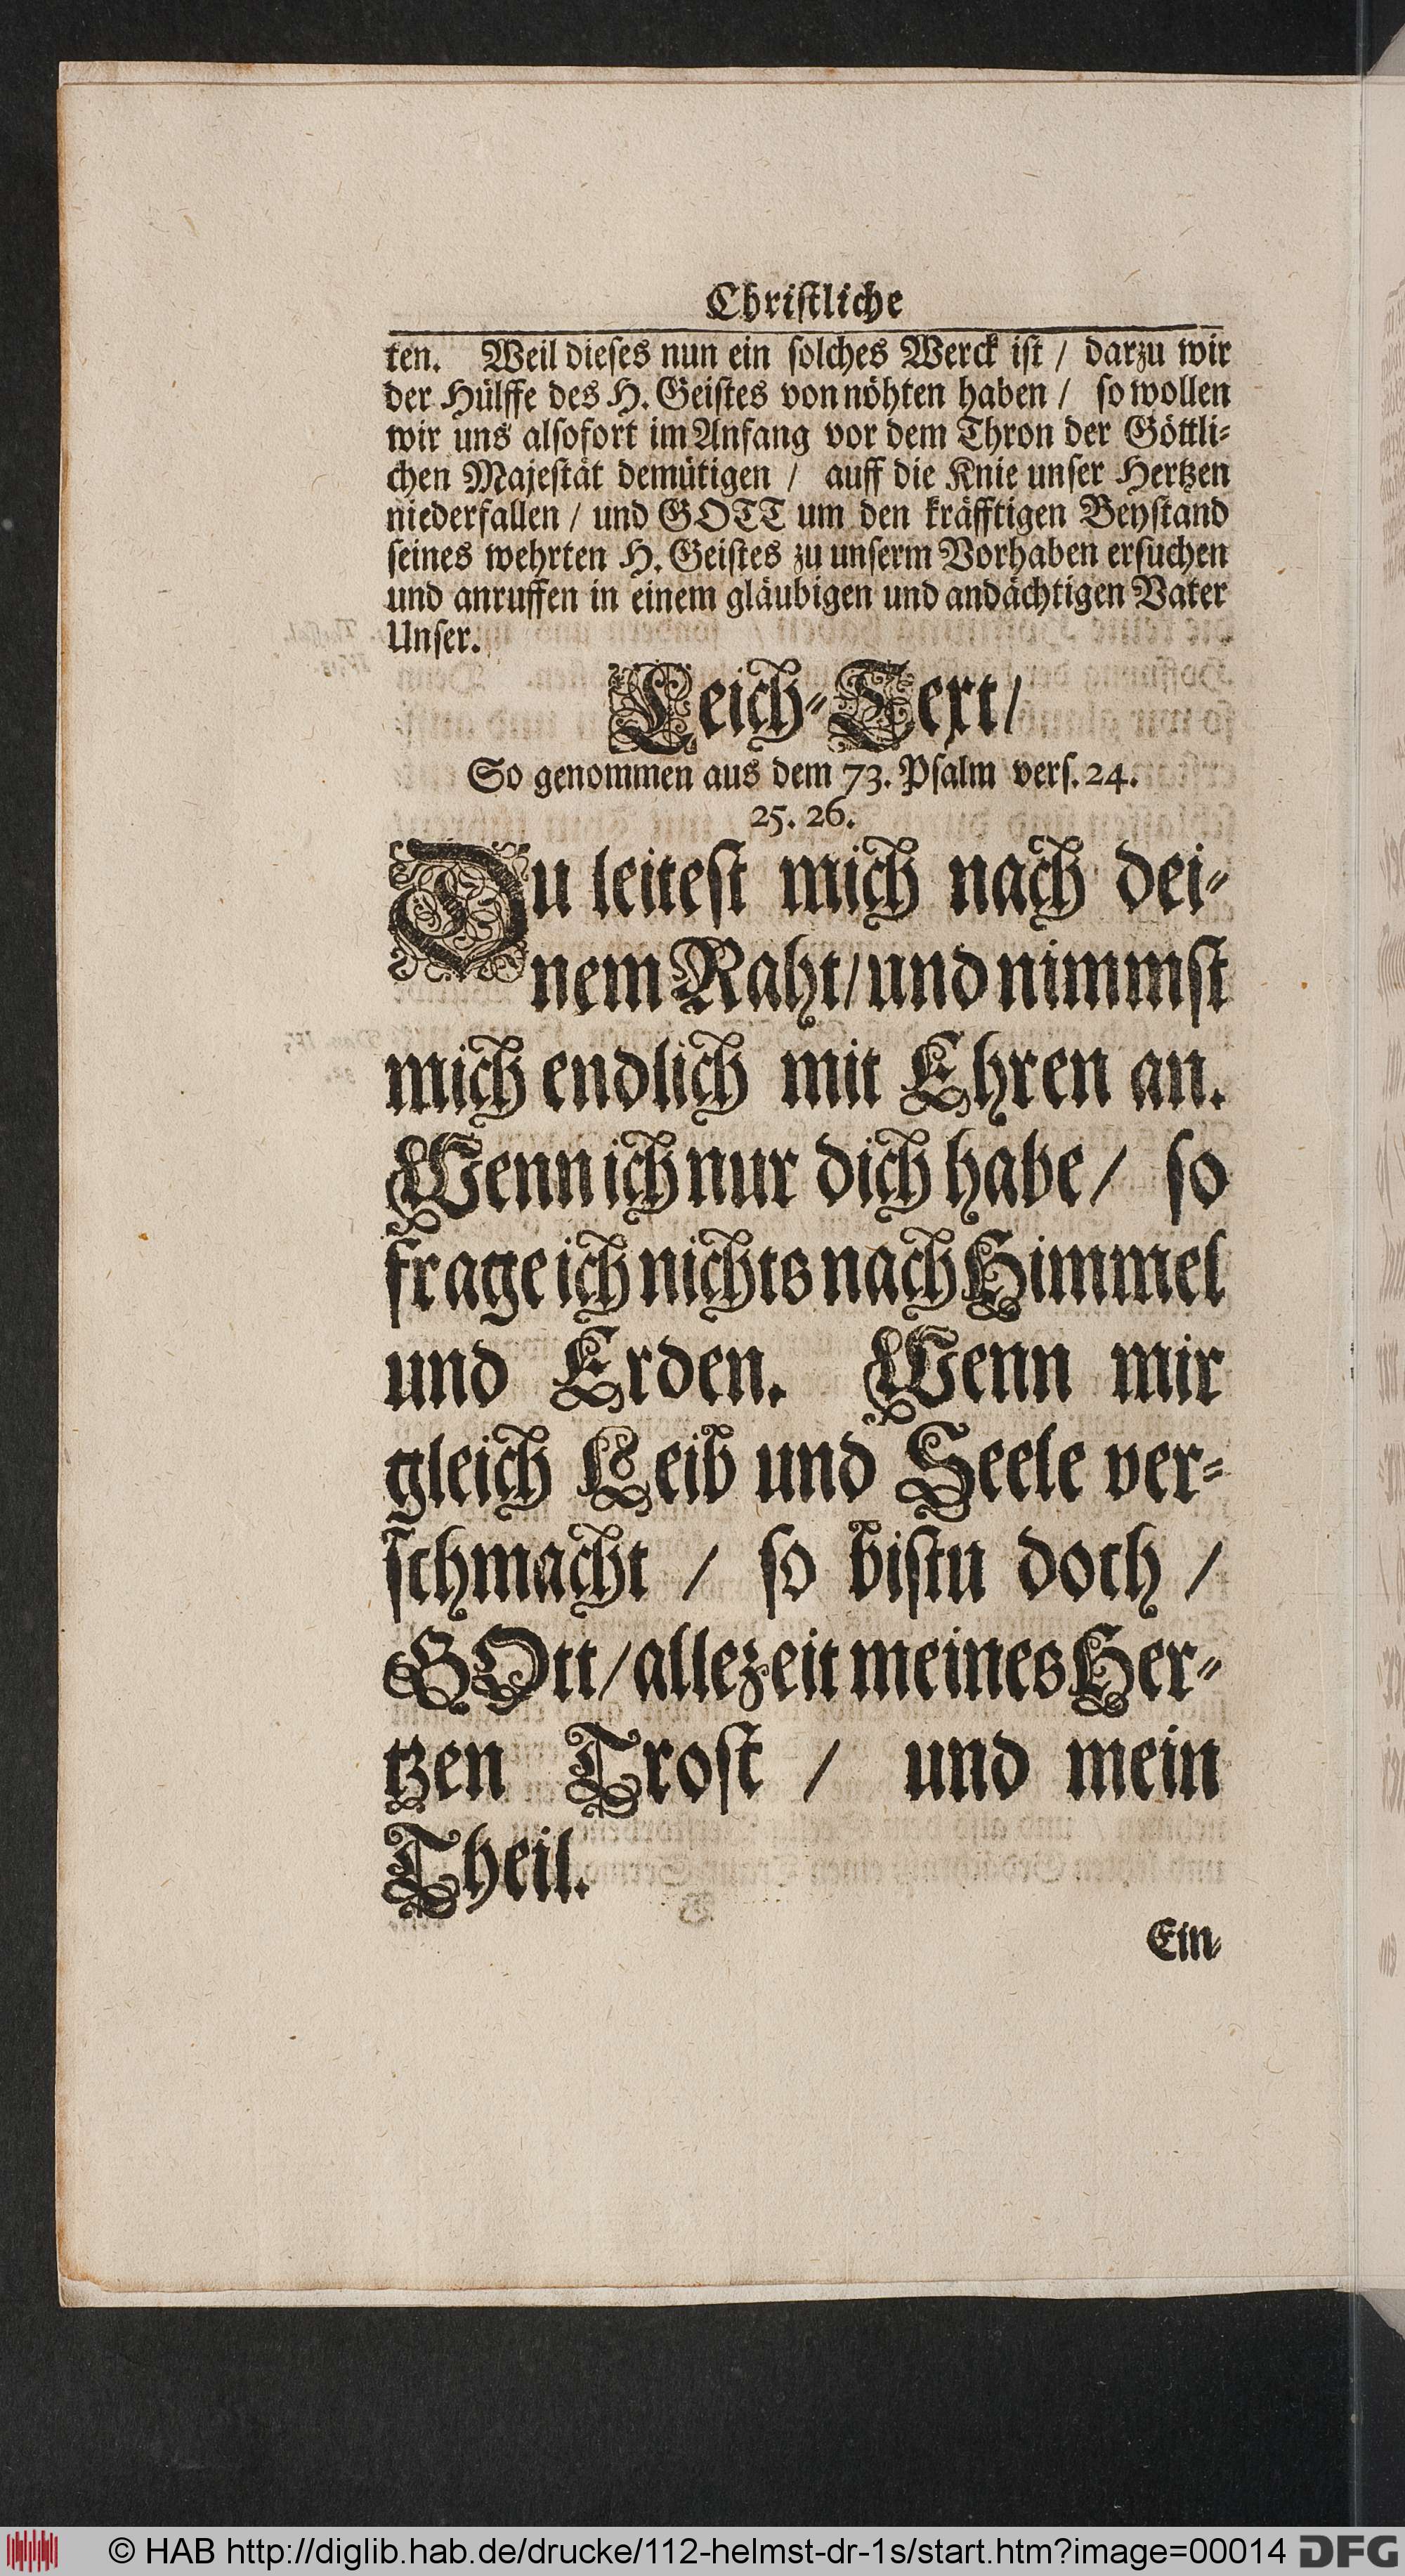 Christliche
ten. Weil dieses nun ein solches Werck ist / darzu wir
der Hülffe des H. Geistes von nöhten haben / so wollen
wir uns alsofort im Anfang vor dem Thron der Göttli-
chen Majestät demütigen / auff die Knie unser Hertzen
niederfallen / und GOTT um den kräfftigen Beystand
seines wehrten H. Geistes zu unserm Vorhaben ersuchen
und anruffen in einem gläubigen und andächtigen Vater
Unser.
Leich-Text/
So genommen aus dem 73. Psalm vers. 24.
25. 26.
Du leitest mich nach dei-
nem Raht/und nimmst
mich endlich mit Ehren an.
Wenn ich nur dich habe / so
frage ich nichts nach Himmel
und Erden. Wenn mir
gleich Leib und Seele ver-
schmacht / so bistu doch /
GOtt/allezeit meines Her-
tzen Trost / und mein
Theil.
Ein-
© HAB http://diglib.hab.de/drucke/112-helmst-dr-1s/start.htm?image=00014 DFG